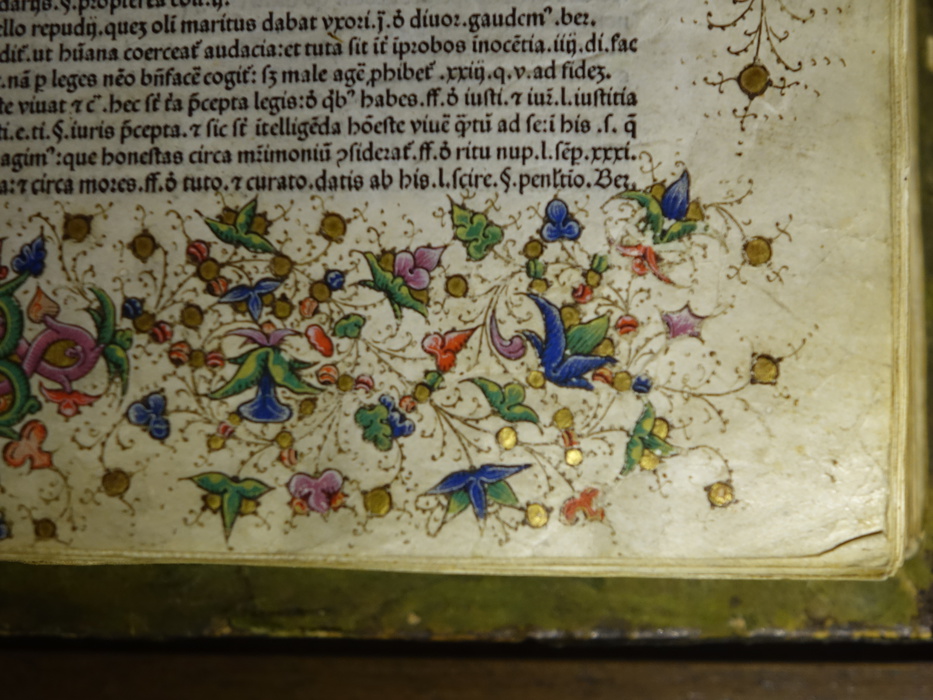 ello repudij.quez oli͂ maritus dabat vxori.j̈.ẟ diuor.gaudemꝰ.ber.
dit͛.ut hu͂ana coerceat͛ audacia:et tuta sit it͛ i͂probos i͂noce͂tia.iiij.di.fac
.na͂ ꝑ leges ne͂o bn͂face͂ cogit͛: sꝫ male age͂ ꝓhibet͛ .xxiij.q.v.ad fidez.
te viuat ⁊ c̃.hec st͛ t͛a p͂cepta legis:ẟ qͥbꝰ habes.ff.ẟ iusti.⁊ iuï.l.iustitia
ti.e.ti.§.iuris p͂cepta.⁊ sic st͛ i͂tellige͂da ho͂este viue͂ q͂tu͂ ad se:i his .s. q͂
agimꝰ:que honestas circa mr͂imoniu͂ ꝯsiderat͛.ff.ẟ ritu nup.l.se͂p.xxxi.
a:⁊ circa mores.ff.ẟ tuto.⁊ curato.datis ab his.l.scire.§.penl̃tio.Ber.